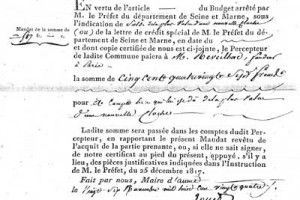 EN vertu de l'article du Budget arrêté par
M. le Préfet du département de Seine et Marne, sous
l'indication de
(ou) de la lettre de crédit spécial de M. le Préfet du dé-
partement de Seine et Marne, en date du
et dont copie certifiée nous est ci-jointe, le Percepteur
de ladite Commune paiera à M.
à Paris
la somme de Cinq Cent quatre vingt Sept francs
pour
d'une nouvelle cloche
Ladite somme sera passée dans les comptes dudit Per-
cepteur, en rapportant le présent Mandat revêtu de
l'acquit de la partie prenante, ou, au cas qu'il ne sait si-
gner notre certificat au pied du présent, appuyé, s'il y a
lieu, des pièces justificatives indiquées dans l'Instruction
de M. le Préfet, du 25 décembre 1817.
Fait par nous, Maire d'
le Vingt Sept mil huit cent vingt quatre
Mandat de la somme de